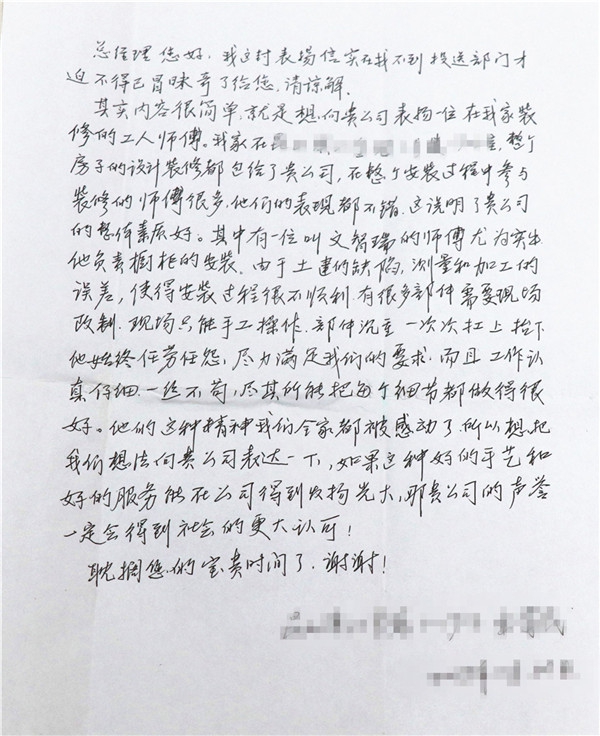 总经理您好，我这封表扬信实在找不到投送部门才
迫不得已冒昧寄了给您，请谅解.
其实内容很简单，就是想向贵公司表扬一位在我家装
修的工人师傅。我家在 整个
房子的设计装修都包给了贵公司，在整个安装过程中参与
装修的师傅很多，他们的表现都不错，这说明了贵公司
的整体素质好。其中有一位叫文智瑞的师傅尤为突出
他负责橱柜的安装。由于土建的缺陷，测量和加工的
误差，使得安装过程很不顺利，有很多部件需要现场
改制，现场只能手工操作，部件沉重一次次扛上抬下
他始终任劳任怨，尽力满足我们的要求，而且工作认
真仔细，一丝不苟，尽其所能把每个细节都做得很
好。他的这种精神我们全家都被感动了所以想把
我们想法向贵公司表达一下，如果这种好的手艺和
好的服务能在公司得到发扬光大，那贵公司的声誉
一定会得到社会的更大认可！
耽搁您的宝贵时间了，谢谢！